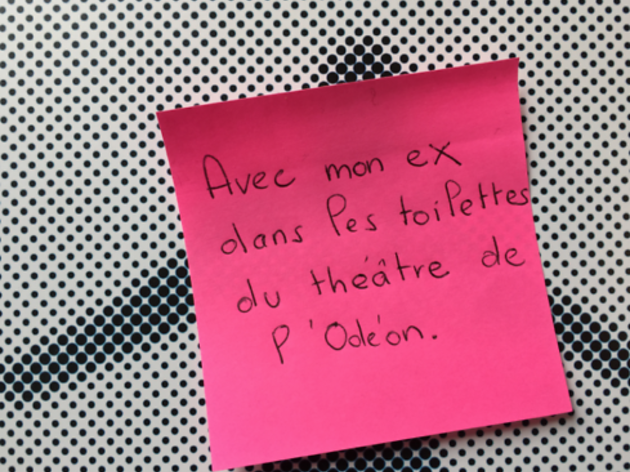 Avec mon ex
dans les toilettes
du théâtre de
l'Odéon.